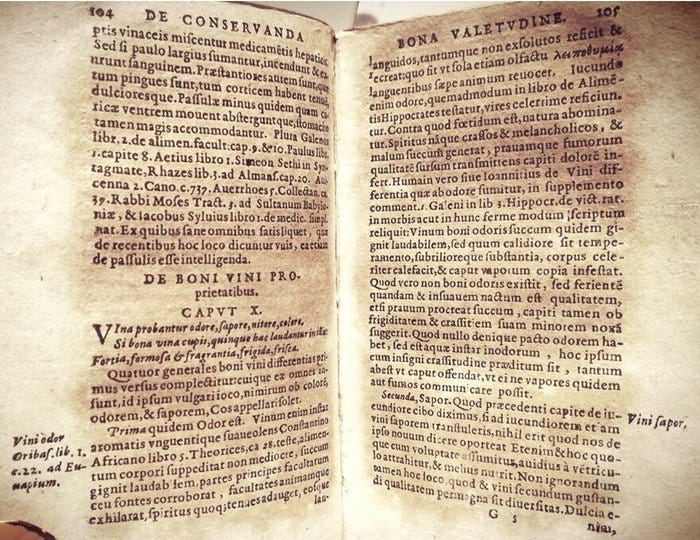 104 DE CONSERVANDA
ptis vinaceis miscentur medicamẽtis hepaticis.
Sed si paulo largius sumantur, incendunt & ex-
urunt sanguinem. Præstantiores autem sunt, quæ
tum pingues sunt, tum corticem habent tenuẽ,
dulcioresque. Passulæ minus quidem quam ca-
ricæ ventrem mouent absterguntque, stomacho
tamen magis accommodantur. Plura Galenus
libr. 2. de alimen. facult. cap. 9. & 10. Paulus libr.
1. capite 8. Aetius libro 1. Simeon Sethi in Syn-
tagmate, Rhazes lib. 3. ad Almans. cap. 20. Aui-
cenna 2. Cano. c. 737. Auerrhoes 5. Collectan. ca.
37. Rabbi Moses Tract. 3. ad Sultanum Babylo-
niæ, & Iacobus Syluius libro 1. de medic. simpl.
nat. Ex quibus sane omnibus satis liquet, quæ
de recentibus hoc loco dicuntur vuis, ea etiam
de passulis esse intelligenda.
DE BONI VINI PRO-
prietatibus.
CAPVT X.
VIna probantur odore, sapore, nitore, colore,
Si bona vina cupis, quinque hæc laudantur in illis:
Fortia, formosa & fragrantia, frigida, frisca.
Quatuor generales boni vini differentias pri-
mus versus complectitur: cuique ex omnes in-
sunt, id ipsum vulgari ioco, nimirum ob colorẽ,
odorem, & saporem, Cos appellari solet.
Prima quidem Odor est. Vinum enim instar
aromatis vnguentique suaueolens Constantino
Africano libro 5. Theorices, ca 28. teste, alimen-
tum corpori suppeditat non mediocre, succum
gignit laudabilem, partes principes facultatum
ceu fontes corroborat, facultates animamque
exhilarat, spiritus quoq; tenues adauget, eosque
lan-
Vini odor
Oribas. lib. 1.
c. 22. ad Eu-
napium.
BONA VALETVDINE. 105
languidos, tantumque non exsolutos reficit &
recreat: quo fit vt sola etiam olfactu λειποθυμίᾳ
languentibus sæpe animum reuocet. Iucundo
enim odore, quemadmodum in libro de Alimẽ-
tis Hippocrates testatur, vires celerrime reficiun-
tur. Contra quod fœtidum est, natura abomina-
tur. Spiritus nãque crassos & melancholicos, &
malum succum generat, prauamque fumorum
qualitatẽ sursum transmittens capiti dolorẽ in-
fert. Humain vero siue Ioannitius de Vini diff-
erentia quæ ab odore sumitur, in supplemento
comment. 1. Galeni in lib 3. Hippocr. de vict. rat.
in morbis acut in hunc ferme modum scriptum
reliquit: Vinum boni odoris succum quidem gi-
gnit laudabilem, sed quum calidiore sit tempe-
ramento, subtilioreque substantia, corpus cele-
riter calefacit, & caput vaporum copia infestat.
Quod vero non boni odoris existit, sed ferientẽ
quandam & insuauem nactum est qualitatem,
etsi prauum procreat succum, capiti tamen ob
frigiditatem & crassitiem suam minorem noxã
suggerit. Quod nullo denique pacto odorem ha-
bet, sed est aquæ instar inodorum, hoc ipsum
cum insigni crassitudine præditum sit, tantum
abest vt caput offendat, vt ei ne vapores quidem
aut fumos communicare possit.
Secunda, Sapor. Quod præcedenti capite de iu-
cundiore cibo diximus, si ad iucundiorem etiam
vini saporem transtuleris, nihil erit quod nos de
ipso nouum dicere oporteat Etenim & hoc quo-
que cum voluptate assumitur, auidius à vẽtricu-
lo attrahitur, & melius nutrit. Non ignorandum
tamen hoc loco, quod & vini secundum gustan-
di qualitatem permagna sit diuersitas. Dulcia e-
G 5 nim,
Vini sapor.